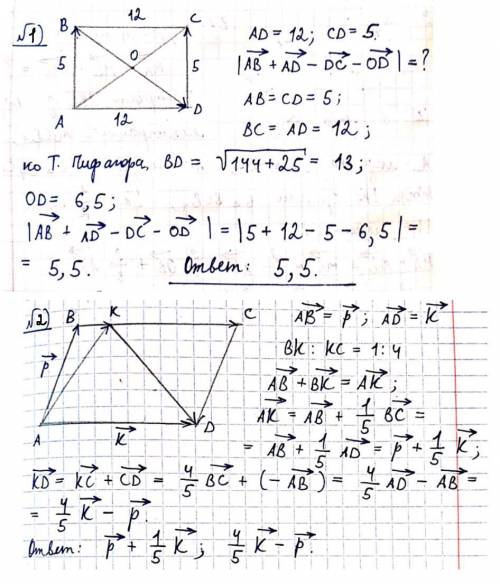 √1)
B 12 C
5 O 5
A 12 D
AD = 12; CD = 5.
|AB + AD − DC − OD| = ?
AB = CD = 5;
BC = AD = 12;
по Т. Пифагора, BD = √144 + 25 = 13;
OD = 6,5;
|AB + AD − DC − OD| = |5 + 12 − 5 − 6,5| =
= 5,5. Ответ: 5,5.
√2)
B K C
P
A K D
AB = P; AD = K
BK : KC = 1 : 4
AB + BK = AK;
AK = AB + 1/5 BC =
= AB + 1/5 AD = P + 1/5 K;
KD = KC + CD = 4/5 BC + (− AB) = 4/5 AD − AB =
= 4/5 K − P.
Ответ: P + 1/5 K; 4/5 K − P.